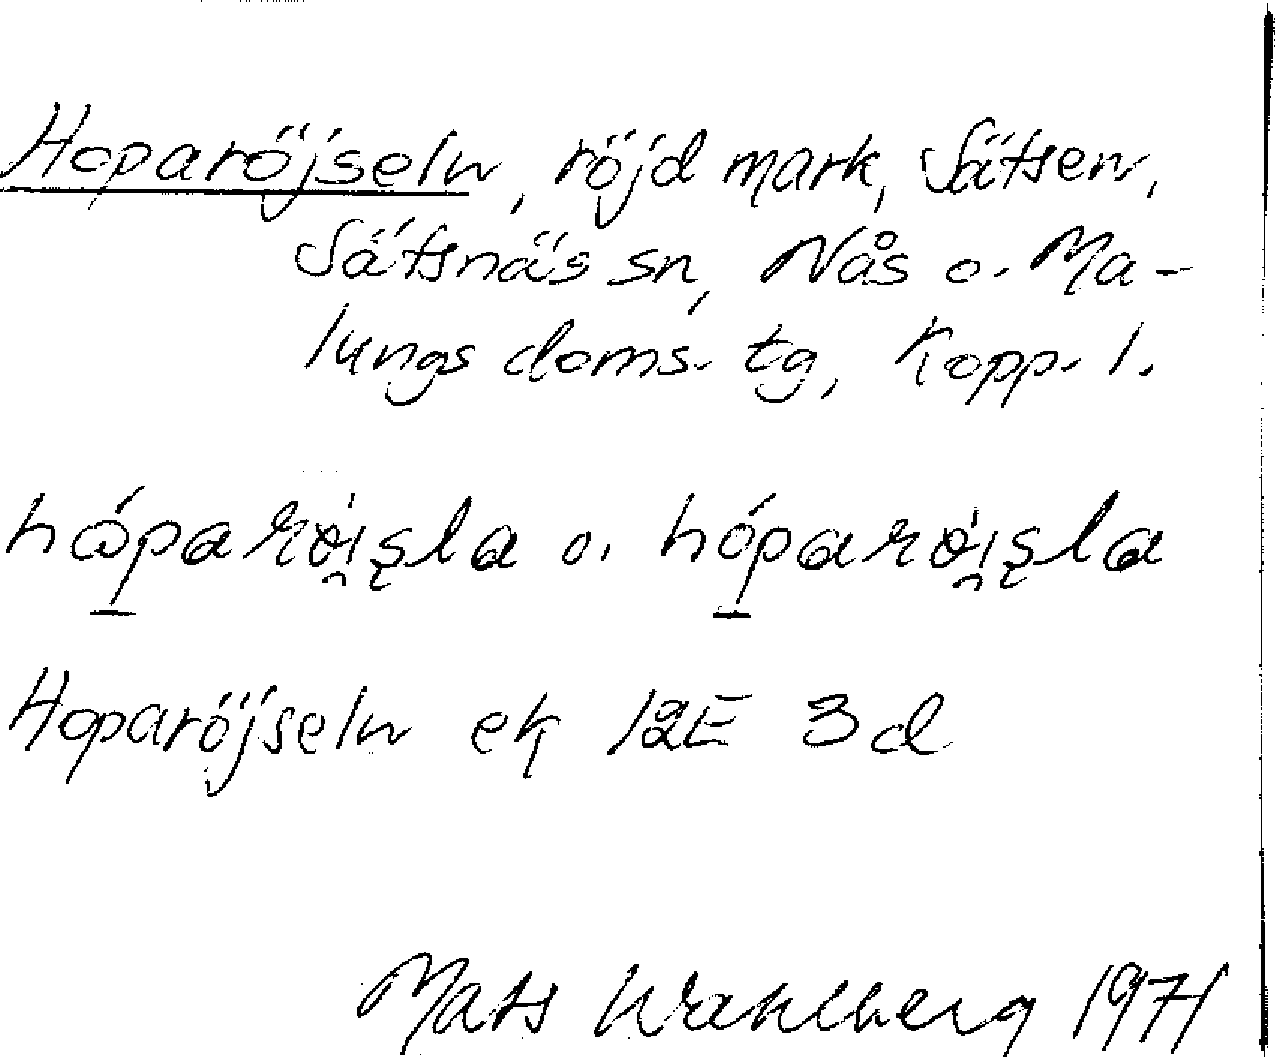 Hoparöjseln, röjd mark, Sätsen,
Sätsnäs sn, Nås o. Ma-
lungs doms. tg, Kopp. l.
o. 
Hoparöjseln ek 12E 3d
Mats Wahlberg 1971